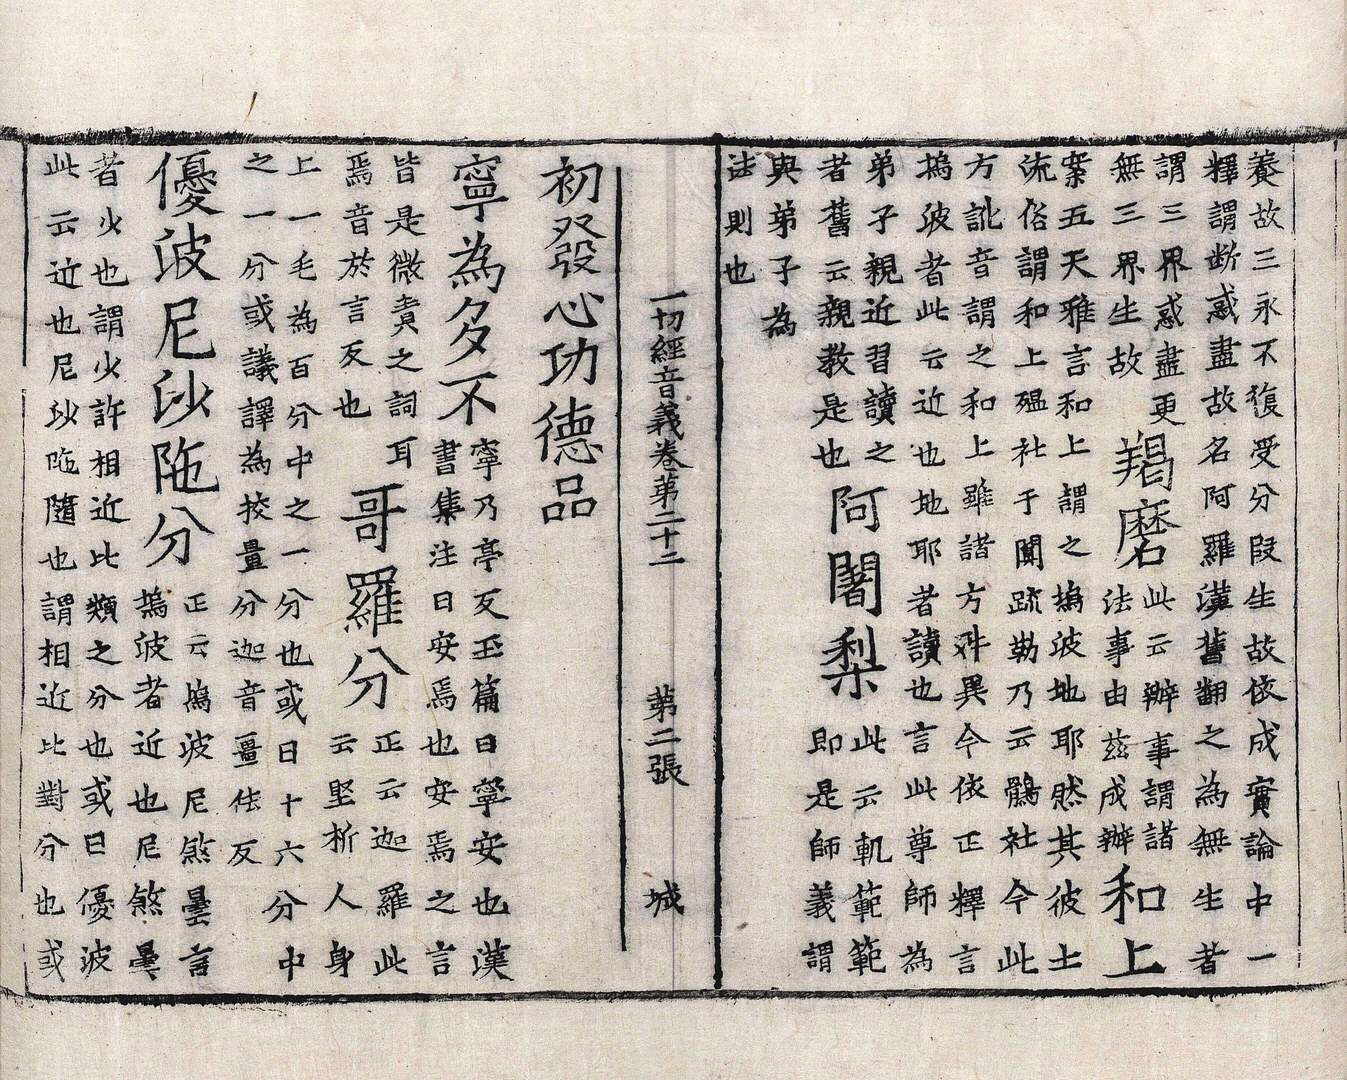 養故三永不復受分段生故依成實論中一
釋謂断惑盡故名阿羅漢舊翻之為無生者
謂三界惑盡更
無三界生故
羯磨
此云辦事謂諸
法事由茲成辦
和上
案五天雅言和上謂之塢波地耶然其彼土
流俗謂和上殟社于闐疏勒乃云鶻社今此
方訛音謂之和上雖諸方舛異今依正釋言
塢波者此云近也地耶者讀也言此尊師為
弟子親近習讀之
者舊云親教是也
阿闍梨
此云軌範範
即是師義謂
與弟子為
法則也
一切經音義卷第二十二 第二張 城
初發心功德品
寧為多不
寧乃亭反玉篇曰寧安也漢
書集注曰安焉也安焉之言
皆是微責之詞耳
焉音於言反也
哥羅分
正云迦羅此
云堅析人身
上一毛為百分中之一分也或曰十六分中
之一分或議譯為挍量分迦音畺佉反
優波尼沙陁分
正云塢波尼煞曇言
塢波者近也尼煞曇
者少也謂少許相近比類之分也或曰優波
此云近也尼沙陁隨也謂相近比對分也或